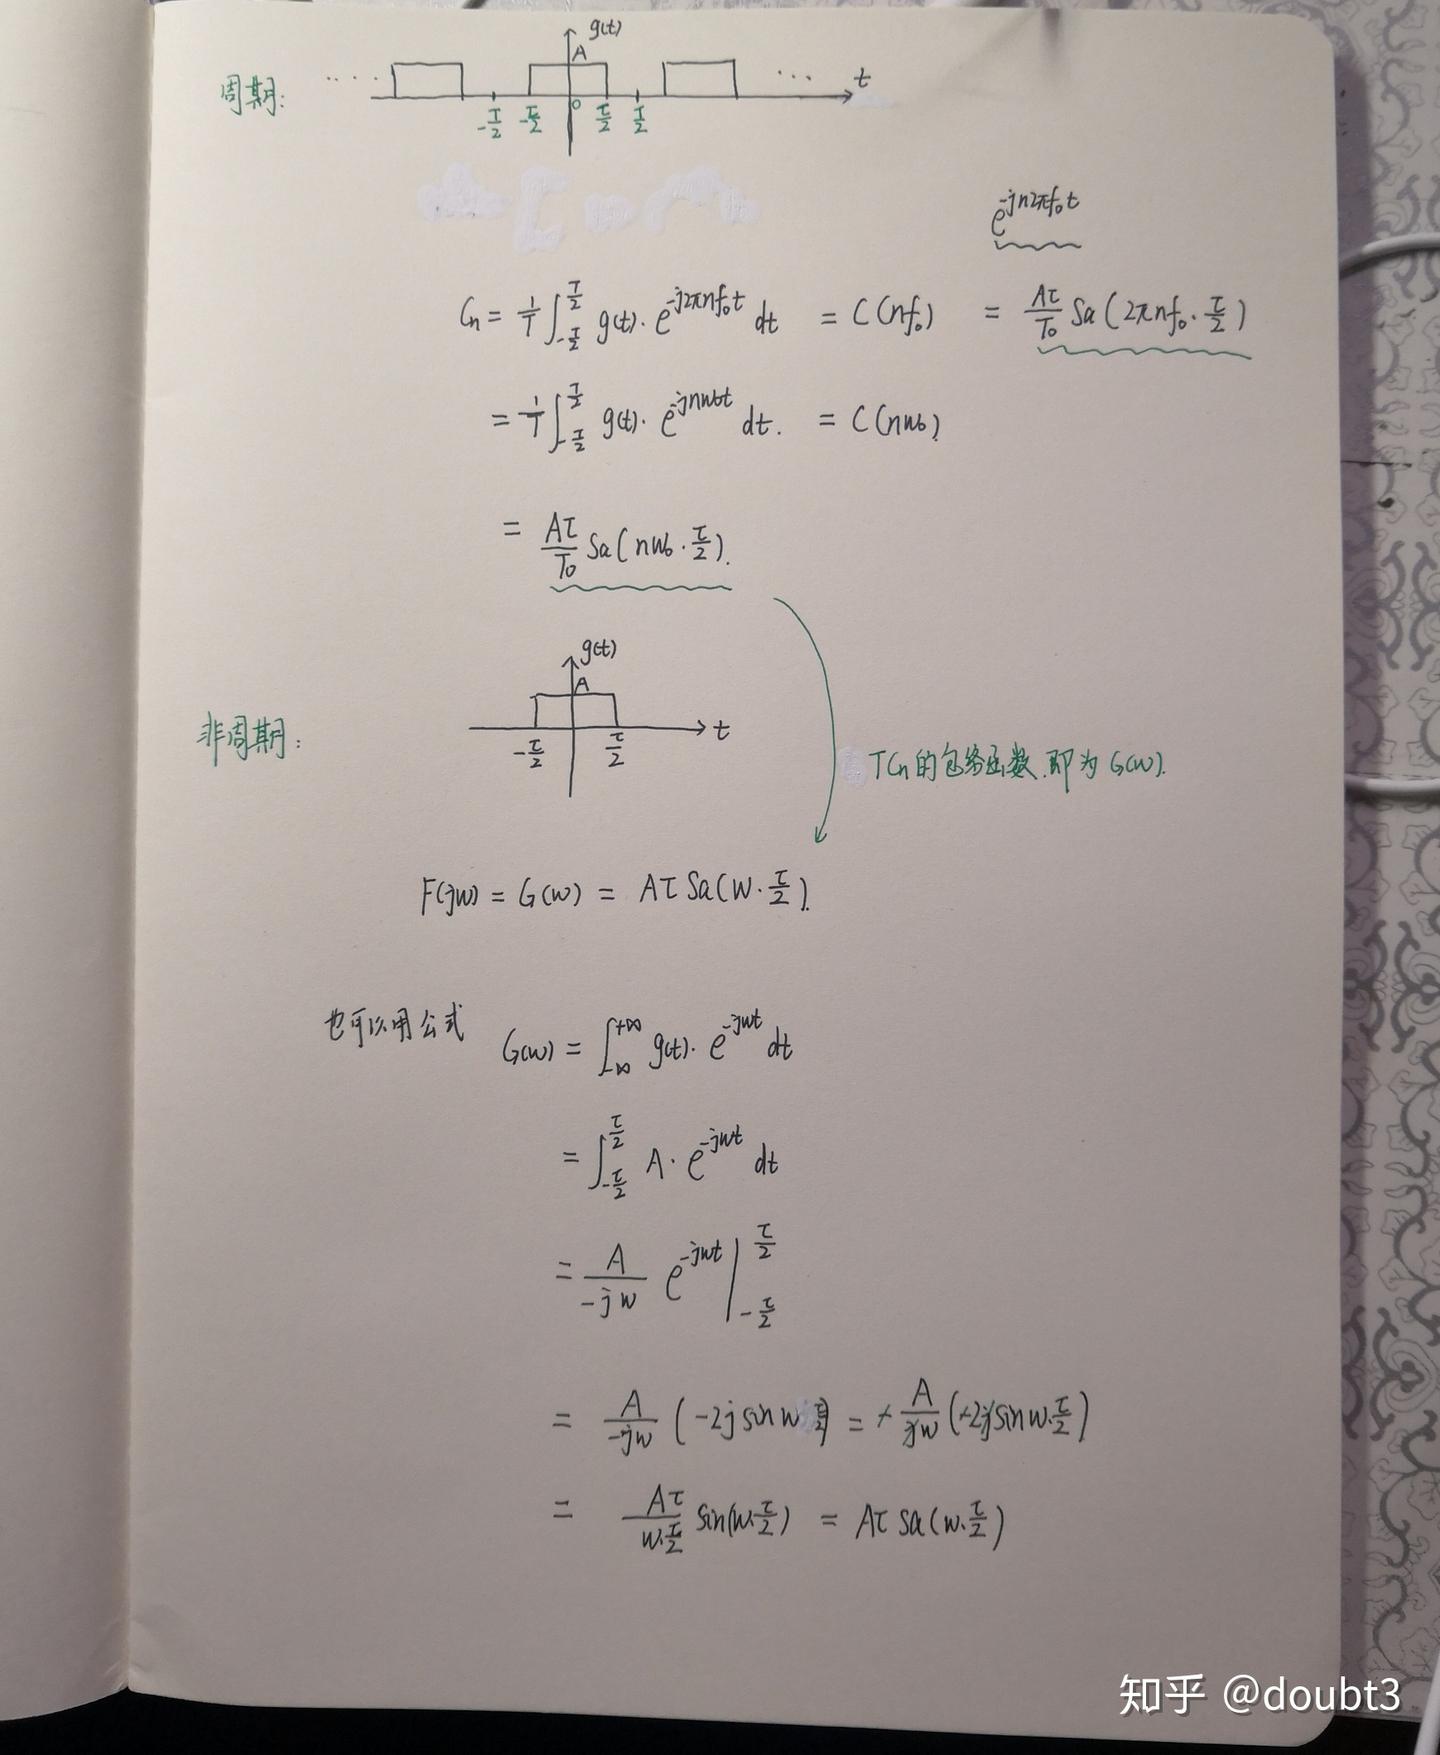 g(t)
A
周期: .... ... t
-T/2 -τ/2 0 τ/2 T/2
e^{-jn2πf₀t}
Cn = 1/T ∫_{-T/2}^{T/2} g(t)· e^{-j2πnf₀t} dt = C(nf₀) = Aτ/T₀ Sa(2πnf₀·τ/2)
= 1/T ∫_{-T/2}^{T/2} g(t)· e^{-jnw₀t} dt. = C(nw₀).
= Aτ/T₀ Sa(nw₀·τ/2).
g(t)
A
非周期: t
-τ/2 τ/2
TCn的包络函数.即为G(w).
F(jw) = G(w) = Aτ Sa(w·τ/2).
也可以用公式 G(w) = ∫_{-∞}^{+∞} g(t)· e^{-jwt} dt
= ∫_{-τ/2}^{τ/2} A· e^{-jwt} dt
= A/-jw e^{-jwt} |_{-τ/2}^{τ/2}
= A/-jw (-2j sin w τ/2) = + A/jw (+2j sin w·τ/2)
= Aτ/w·τ/2 sin(w·τ/2) = Aτ Sa(w·τ/2)
知乎 @doubt3